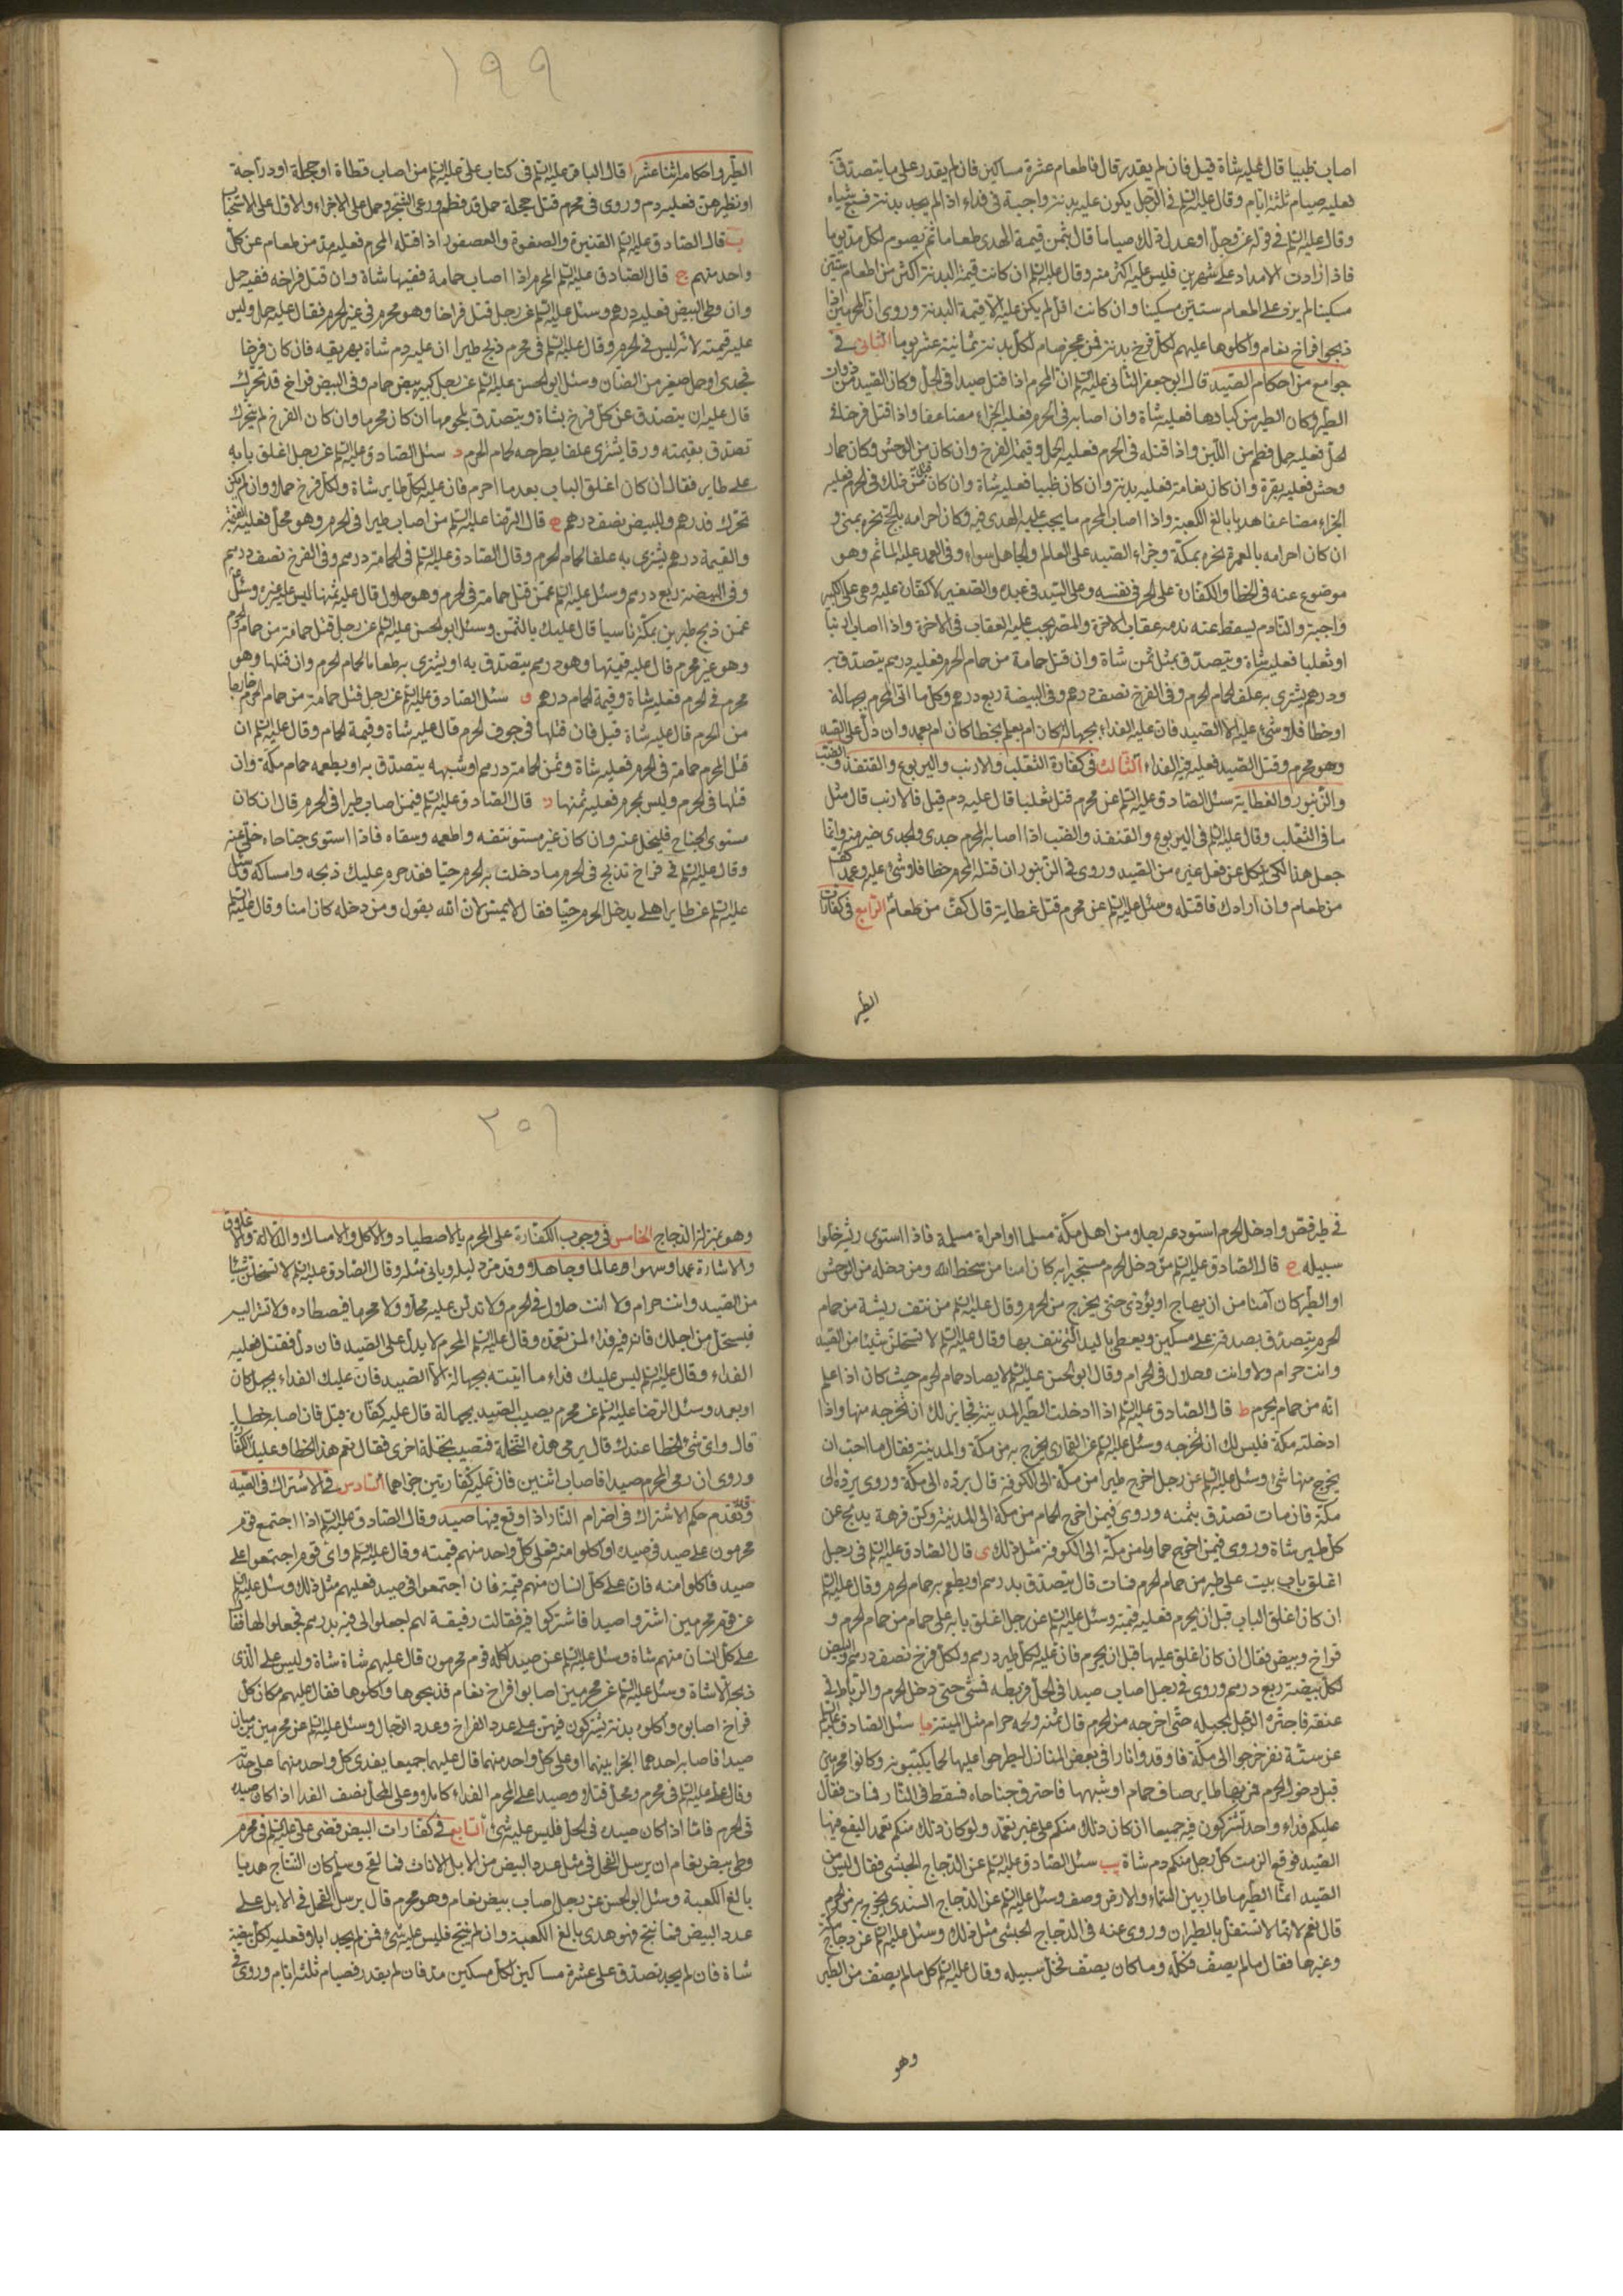 اصاب ظبيا قال عليه شاة قيل فان لم يقدر قال فاطعام عشرة مساكين فان لم يقدر على ما يتصدق
فعليه صيام ثلثة ايام وقال عليه السلم في الرجل يكون عليه بدنة واجبة في فداء اذا لم يجد بدنة فسبع شياه
وقال عليه السلم في قوله عز وجل او عدل ذلك صياما قال يثمن قيمة الهدى طعاما ثم يصوم لكل مد يوما
فاذا زادت الامداد على شهرين فليس عليه اكثر منه وقال عليه السلم ان كانت قيمة البدنة اكثر من اطعام ستين
مسكينا لم يزد على اطعام ستين مسكينا وان كانت اقل لم يكن عليه الا قيمة البدنة وروى ان المحرمين اذا
ذبحوا فراخ نعام واكلوها عليهم لكل فرخ بدنة فمن عجز صام لكل بدنة ثمانية عشر يوما الثاني في
جوامع من احكام الصيد قال ابو جعفر الثاني عليه السلم ان المحرم اذا قتل صيدا في الحل وكان الصيد من ذوات
الطير وكان الطير من كبارها فعليه شاة وان اصابه في الحرم فعليه الجزاء مضاعفا واذا قتل فرخا في
الحل فعليه حمل فطم من اللبن واذا قتله في الحرم فعليه الحمل وقيمة الفرخ وان كان من الوحش وكان حمار
وحش فعليه بقرة وان كان نعامة فعليه بدنة وان كان ظبيا فعليه شاة وان كان قتل من ذلك في الحرم فعليه
الجزاء مضاعفا هديا بالغ الكعبة واذا اصاب المحرم ما يجب عليه الهدى فيه وكان احرامه بالحج نحره بمنى و
ان كان احرامه بالعمرة نحره بمكة وجزاء الصيد على العالم والجاهل سواء وفي العمد عليه الماثم وهو
موضوع عنه في الخطا والكفارة على الحر في نفسه وعلى السيد في عبده والصغير لا كفارة عليه وهي على الكبير
واجبة والنادم يسقط عنه ندمه عقاب الاخرة والمصر يجب عليه العقاب في الاخرة واذا اصاب ارنبا
او ثعلبا فعليه شاة ويتصدق بمثل ثمن شاة وان قتل حمامة من حمام الحرم فعليه درهم يتصدق به
ودرهم يشترى به علف لحمام الحرم وفي الفرخ نصف درهم وفي البيضة ربع درهم وكل ما اتى المحرم بجهالة
او خطا فلا شئ عليه الا الصيد فان عليه الفداء بجهالة كان ام بعلم بخطا كان ام بعمد وان دل على الصيد
وهو محرم وقتل الصيد فعليه فيه الفداء الثالث في كفارة الثعلب والارنب واليربوع والقنفذ والضب
والزنبور والعظاية سئل الصادق عليه السلم عن محرم قتل ثعلبا قال عليه دم قيل فلارنب قال مثل
ما في الثعلب وقال عليه السلم في اليربوع والقنفذ والضب اذا اصابه المحرم جدى والجدى خير منه وانما
جعل هذا لكى ينكل عن فعل غيره من الصيد وروى في الزنبور ان قتله المحرم خطا فلا شئ عليه وعمدا كف
من طعام وان ارادك فاقتله وسئل عليه السلم عن محرم قتل عظاية قال كف من طعام الرابع في كفارات
الطير
١٩٩
الطير واحكامه اثنا عشر ا قال الباقر عليه السلم في كتاب على عليه السلم من اصاب قطاة او حجلة او دراجة
او نظيرهن فعليه دم وروى في محرم قتل حجلة حمل قد فطم ورعى الشجر وحمل على الاجزاء والاول على الاستحباب
ب قال الصادق عليه السلم القنبرة والصعوة والعصفور اذا قتله المحرم فعليه مد من طعام عن كل
واحد منهم ج قال الصادق عليه السلم المحرم اذا اصاب حمامة ففيها شاة وان قتل فراخه ففيه حمل
وان وطى البيض فعليه درهم وسئل عليه السلم عن رجل قتل فراخا وهو محرم في غير الحرم فقال عليه حمل وليس
عليه قيمته لانه ليس في الحرم وقال عليه السلم في محرم ذبح طيرا ان عليه دم شاة يهريقه فان كان فرخا
فجدى او حمل صغير من الضان وسئل ابو الحسن عليه السلم عن رجل كسر بيض حمام وفي البيض فراخ قد تحرك
قال عليه ان يتصدق عن كل فرخ بشاة ويتصدق بلحومها ان كان محرما وان كان الفرخ لم يتحرك
تصدق بقيمته ورقا يشترى علفا يطرحه لحمام الحرم د سئل الصادق عليه السلم عن رجل اغلق بابه
على طاير فقال ان كان اغلق الباب بعد ما احرم فان عليه لكل طاير شاة ولكل فرخ حملا وان لم يكن
تحرك فدرهم وللبيض نصف درهم ه قال الرضا عليه السلم من اصاب طيرا في الحرم وهو محل فعليه القيمة
والقيمة درهم يشترى به علفا لحمام الحرم وقال الصادق عليه السلم في الحمامة درهم وفي الفرخ نصف درهم
وفي البيضة ربع درهم وسئل عليه السلم عمن قتل حمامة في الحرم وهو حلال قال عليه ثمنها ليس عليه غيره وسئل
عمن ذبح طيرين بمكة ناسيا قال عليك بالثمن وسئل ابو الحسن عليه السلم عن رجل قتل حمامة من حمام الحرم
وهو غير محرم قال عليه قيمتها وهو درهم يتصدق به او يشترى به طعاما لحمام الحرم وان قتلها وهو
محرم في الحرم فعليه شاة وقيمة الحمام درهم و سئل الصادق عليه السلم عن رجل قتل حمامة من حمام الحرم خارجا
من الحرم قال عليه شاة قيل فان قتلها في جوف الحرم قال عليه شاة وقيمة الحمام وقال عليه السلم ان
قتل المحرم حمامة في الحرم فعليه شاة وثمن الحمامة درهم او شبهه يتصدق به او يطعمه حمام مكة وان
قتلها في الحرم وليس بمحرم فعليه ثمنها ز قال الصادق عليه السلم فيمن اصاب طيرا في الحرم قال ان كان
مستوى الجناح فليخل عنه وان كان غير مستو نتفه واطعمه وسقاه فاذا استوى جناحاه خلى عنه
وقال عليه السلم في فراخ تذبح في الحرم ما دخلت به الحرم حيا فقد حرم عليك ذبحه وامساكه وسئل
عليه السلم عن طاير اهلى يدخل الحرم حيا فقال لا يمس لان الله يقول ومن دخله كان امنا وقال عليه السلم
في طير قص وادخل الحرم استودعه رجلا من اهل مكة مسلما او امراة مسلمة فاذا استوى ريشه خلوا
سبيله ح قال الصادق عليه السلم من دخل الحرم مستجيرا به كان امنا من سخط الله ومن دخله من الوحش
او الطير كان آمنا من ان يهاج او يؤذى حتى يخرج من الحرم وقال عليه السلم من نتف ريشة من حمام
الحرم يتصدق بصدقة على مسكين ويعطى باليد التي نتف بها وقال عليه السلم لا تستحلن شيئا من الصيد
وانت حرام ولا وانت حلال في الحرام وقال ابو الحسن عليه السلم لا يصاد حمام الحرم حيث كان اذا علم
انه من حمام الحرم ط قال الصادق عليه السلم اذا ادخلت الطير المدينة فجايز لك ان تخرجه منها واذا
ادخلته مكة فليس لك ان تخرجه وسئل عليه السلم عن القمارى يخرج به من مكة والمدينة فقال ما احب ان
يخرج منها شئ وسئل عليه السلم عن رجل اخرج طيرا من مكة الى الكوفة قال يرده الى مكة وروى يرده الى
مكة فان مات تصدق بثمنه وروى فيمن اخرج حمام من مكة الى المدينة وكن فرهة يذبح عن
كل طير شاة وروى فيمن اخرج حماما من مكة الى الكوفة مثل ذلك ى قال الصادق عليه السلم في رجل
اغلق باب بيت على طير من حمام الحرم فمات قال يتصدق بدرهم او يطعم به حمام الحرم وقال عليه السلم
ان كان اغلق الباب قبل ان يحرم فعليه قيمته وسئل عليه السلم عن رجل اغلق بابه على حمام من حمام الحرم و
فراخ وبيض فقال ان كان اغلق عليها قبل ان يحرم فان عليه لكل طير درهم ولكل فرخ نصف درهم والبيض
لكل بيضة ربع درهم وروى في رجل اصاب صيدا في الحل فربطه فمشى حتى دخل الحرم والرباط في
عنقه فاجتره الرجل بحبله حتى اخرجه من الحرم قال ثمنه ولحمه حرام مثل الميتة يا سئل الصادق عليه السلم
عن ستة نفر خرجوا الى مكة فاوقدوا نارا في بعض المنازل ليطرحوا عليها لحما يكببونه وكانوا محرمين
قبل دخول الحرم فمر بها طاير صاف حمام او شبهها فاحترق جناحاه فسقط في النار فمات فقال
عليكم فداء واحد تشتركون فيه جميعا ان كان ذلك منكم على غير تعمد ولو كان ذلك منكم تعمدا ليقع فيها
الصيد فوقع الزمت كل رجل منكم دم شاة يب سئل الصادق عليه السلم عن الدجاج الحبشى فقال ليس من
الصيد انما الطير ما طار بين السماء والارض وصف وسئل عليه السلم عن الدجاج السندى يخرج به من الحرم
قال نعم لانها لا تستقل بالطيران وروى عنه في الدجاج الحبشى مثل ذلك وسئل عليه السلم عن دجاج مكة
وغيرها فقال ما لم يصف فكله وما كان يصف فخل سبيله وقال عليه السلم كل ما لم يصف من الطير
وهو
وهو بمنزلة الدجاج الخامس في وجوب الكفارة على المحرم بالاصطياد والاكل والامساك والدلالة
والاشارة عمدا وسهوا وعالما وجاهلا وقد مر دليله وياتى مثله وقال الصادق عليه السلم لا تستحلن شيئا
من الصيد وانت حرام ولا انت حلال في الحرم ولا تدلن عليه محلا ولا محرما فيصطاده ولا تشر اليه
فيستحل من اجلك فان فيه فداء لمن تعمده وقال عليه السلم المحرم لا يدل على الصيد فان دل فقتل فعليه
الفداء وقال عليه السلم ليس عليك فداء ما اتيته بجهالة الا الصيد فان عليك الفداء بجهل كان
او بعمد وسئل الرضا عليه السلم عن محرم يصيب الصيد بجهالة قال عليه كفارة قيل فان اصابه خطا
قال واى شئ الخطا عندك قال يرمى هذه النخلة فتصيب نخلة اخرى فقال نعم هذا الخطا وعليه الكفارة
وروى ان رمى المحرم صيدا فاصاب اثنين فان عليه كفارتين جزاهما السادس في الاشتراك في الصيد
وقد تقدم حكم الاشتراك في اضرام النار اذا وقع فيها صيد وقال الصادق عليه السلم اذا اجتمع قوم
محرمون على صيد في صيده او اكلوا منه فعلى كل واحد منهم قيمته وقال عليه السلم واى قوم اجتمعوا على
صيد فاكلوا منه فان على كل انسان منهم قيمة فان اجتمعوا في صيد فعليهم مثل ذلك وسئل عليه السلم
عن قوم محرمين اشتروا صيدا فاشتركوا فيه فقالت رفيقة لهم اجعلوا لى فيه بدرهم فجعلوا لها فقال
على كل انسان منهم شاة وسئل عليه السلم عن صيد اكله قوم محرمون قال عليهم شاة شاة وليس على الذى
ذبحه الا شاة وسئل عليه السلم عن محرمين اصابوا افراخ نعام فذبحوها واكلوها فقال عليهم مكان كل
فرخ اصابوه واكلوه بدنة يشتركون فيهن على عدد الفراخ وعدد الرجال وسئل عليه السلم عن محرمين يرميان
صيدا فاصابه احدهما الجزا بينهما او على كل واحد منهما قال عليهما جميعا يفدى كل واحد منهما على حدته
وقال على عليه السلم في محرم ومحل قتلا صيدا على المحرم الفداء كاملا وعلى المحل نصف الفدا اذا كان صيده
في الحرم فاما اذا كان صيده في الحل فليس عليه شئ السابع في كفارات البيض قضى على عليه السلم في محرم
وطى بيض نعام ان يرسل الفحل في مثل عدد البيض من الابل الاناث فما لقح وسلم كان النتاج هديا
بالغ الكعبة وسئل ابو الحسن عن رجل اصاب بيض نعام وهو محرم قال يرسل الفحل في الابل على
عدد البيض فما نتج فهو هدى بالغ الكعبة وان لم ينتج فليس عليه شئ فمن لم يجد ابلا فعليه لكل بيضة
شاة فان لم يجد تصدق على عشرة مساكين لكل مسكين مد فان لم يقدر فصيام ثلثة ايام وروى في